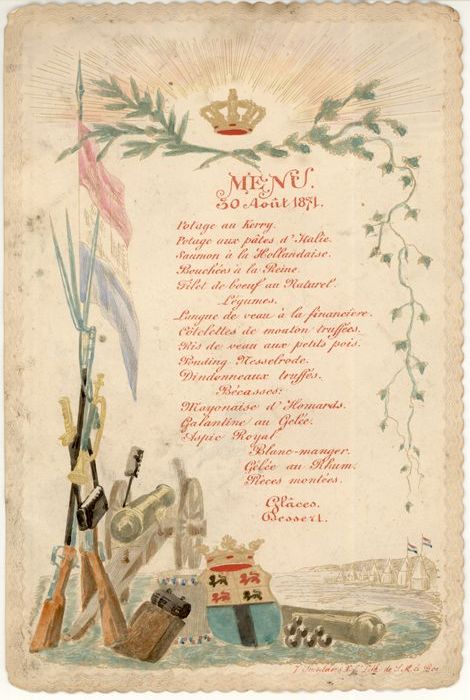 MENU.
30 Août 1871.
Potage au Kerry.
Potage aux pâtes d'Italie.
Saumon à la Hollandaise.
Bouchées à la Reine.
Filet de boeuf au Naturel.
Légumes.
Langue de veau à la financière.
Côtelettes de mouton truffées.
Ris de veau aux petits pois.
Pouding Nesselrode.
Dindonneaux truffés.
Bécasses:
Mayonaise d'Homards.
Galantine au Gelée.
Aspic Royal
Blanc-manger.
Gélée au Rhum.
Pièces montées.
Glâces.
Dessert.
Lith. de S.M. le Roi